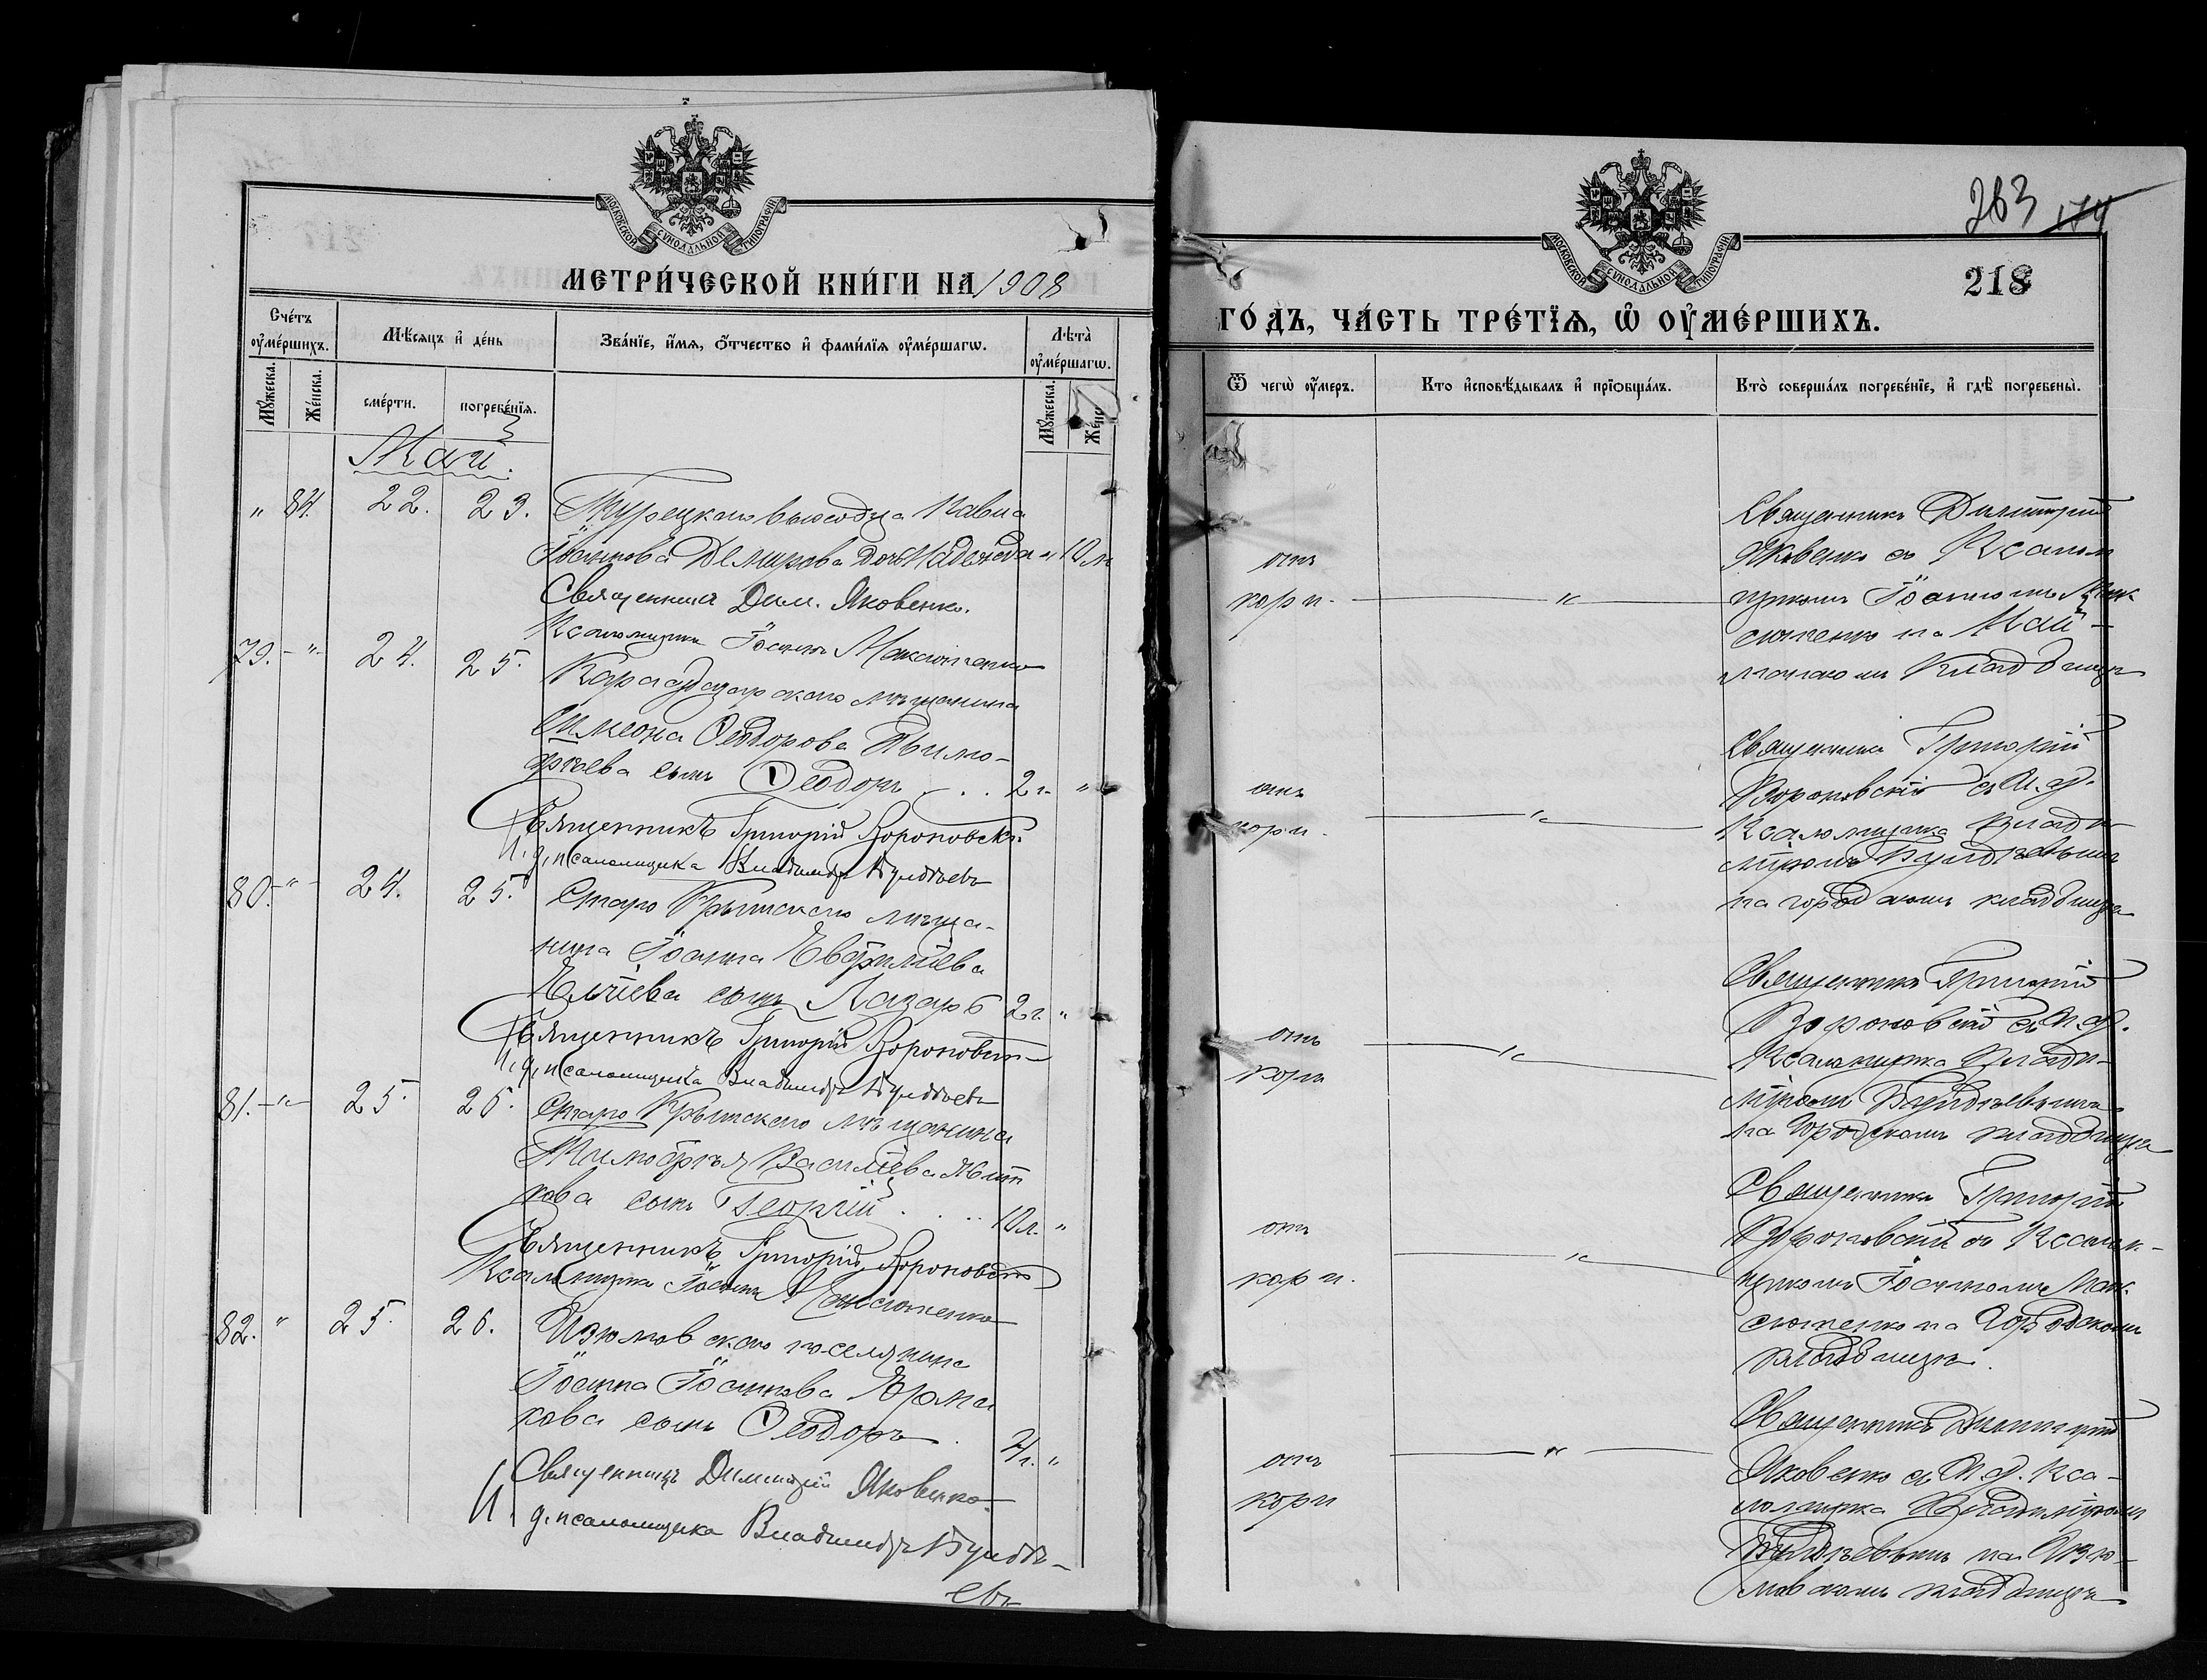 МОСКОВСКОЙ СѴНОДАЛЬНОЙ ТИПОГРАФІИ
МЕТРИ́ЧЕСКОЙ КНИ́ГИ НА 1908
Сче́тъ ѹ҆ме́ршихъ.
Мѣ́сяцъ и҆ де́нь
Зва́нїе, и҆́мя, ѻ҆́тчество и҆ фами́лїя ѹ҆ме́ршагѡ.
Лѣ́та ѹ҆ме́ршагѡ.
Мꙋ́жеска.
Же́нска.
сме́рти.
погребе́нїя.
Мꙋ́жеска.
Май.
" 84. 22. 23. Турецкаго выходца Павла
Іоаннова Демирова дочь Надежда " 10 л
Священникъ Дим. Яковенко.
Псаломщикъ Іоаннъ Максюченко
79. - " - 24. 25. Карасубазарскаго мѣщанина
Симеона Ѳеодорова
сынъ Ѳеодоръ . . 2 г. "
Священникъ Григорій Вороновскій
И. д. псаломщика Владиміръ Булдѣевъ
80. - " - 24. 25. Старо Крымскаго мѣща-
нина Іоанна
сынъ Лазарь 2 г. "
Священникъ Григорій Вороновскій
И. д. псаломщика Владиміръ Булдѣевъ
81. - " - 25. 26. Старо Крымскаго мѣщанина
Тимоѳея Васильева
кова сынъ Георгій . . . 10 л. "
Священникъ Григорій Вороновскій
Псаломщикъ Іоаннъ Максюченко
82. " 25. 26. Изюмовскаго поселянина
Іоанна Іоаннова Ерма
кова сынъ Ѳеодоръ . 4 г. "
Священникъ Димитрій Яковенко.
И. д. псаломщика Владиміръ Булдѣ-
евъ
263 174
МОСКОВСКОЙ СѴНОДАЛЬНОЙ ТИПОГРАФІИ
218
ГО́ДЪ, ЧА́СТЬ ТРЕ́ТЇѦ, Ѡ҆ ОУ҆МЕ́РШИХЪ.
Ѿ чегѡ̀ ѹ҆́меръ.
Кто и҆сповѣ́дывалъ и҆ прїѻбща́лъ.
Кто̀ соверша́лъ погребе́нїе, и҆ гдѣ̀ погребены̀.
отъ
кори. - " -
Священникъ Димитрій
Яковенко съ Псалом
щикомъ Іоанномъ Мак
сюченко на Май-
кладбищѣ
отъ
кори. - " -
Священникъ Григорій
Вороновскій съ И. д.
Псаломщика Влади
міромъ Булдѣевымъ
на городскомъ кладбищѣ
отъ
кори - " -
Священникъ Григорій
Вороновскій съ И. д.
Псаломщика Влади-
міромъ Булдѣевымъ
на Городскомъ кладбищѣ
отъ
кори. - " -
Священникъ Григорій
Вороновскій съ Псалом-
щикомъ Іоанномъ Мак-
сюченко на Городскомъ
кладбищѣ.
отъ
кори - " -
Священникъ Димитрій
Яковенко съ И. д. Пса-
ломщика Владиміромъ
Булдѣевымъ на Изю-
мовскомъ кладбищѣ